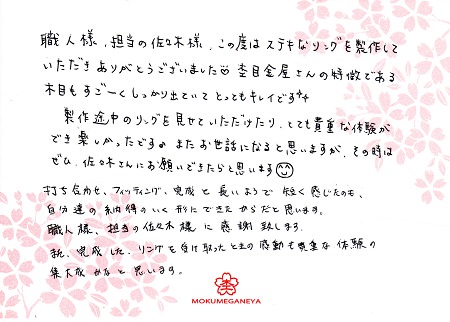 職人様、担当の佐々木様、この度はステキなリングを製作して
いただきありがとうございました 杢目金屋さんの特徴である
木目もすごーくしっかり出ていてとってもキレイです
製作途中のリングを見せていただけたり、とても貴重な体験が
でき楽しかったです。またお世話になると思いますが、その時は
ぜひ、佐々木さんにお願いできたらと思います
打ち合わせ、フィッティング、完成と長いようで短く感じたのも、
自分達の納得のいく形にできたからだと思います。
職人様、担当の佐々木様に感謝致します。
又、完成した、リングを受け取ったときの感動も貴重な体験の
集大成かなと思います。
MOKUMEGANEYA